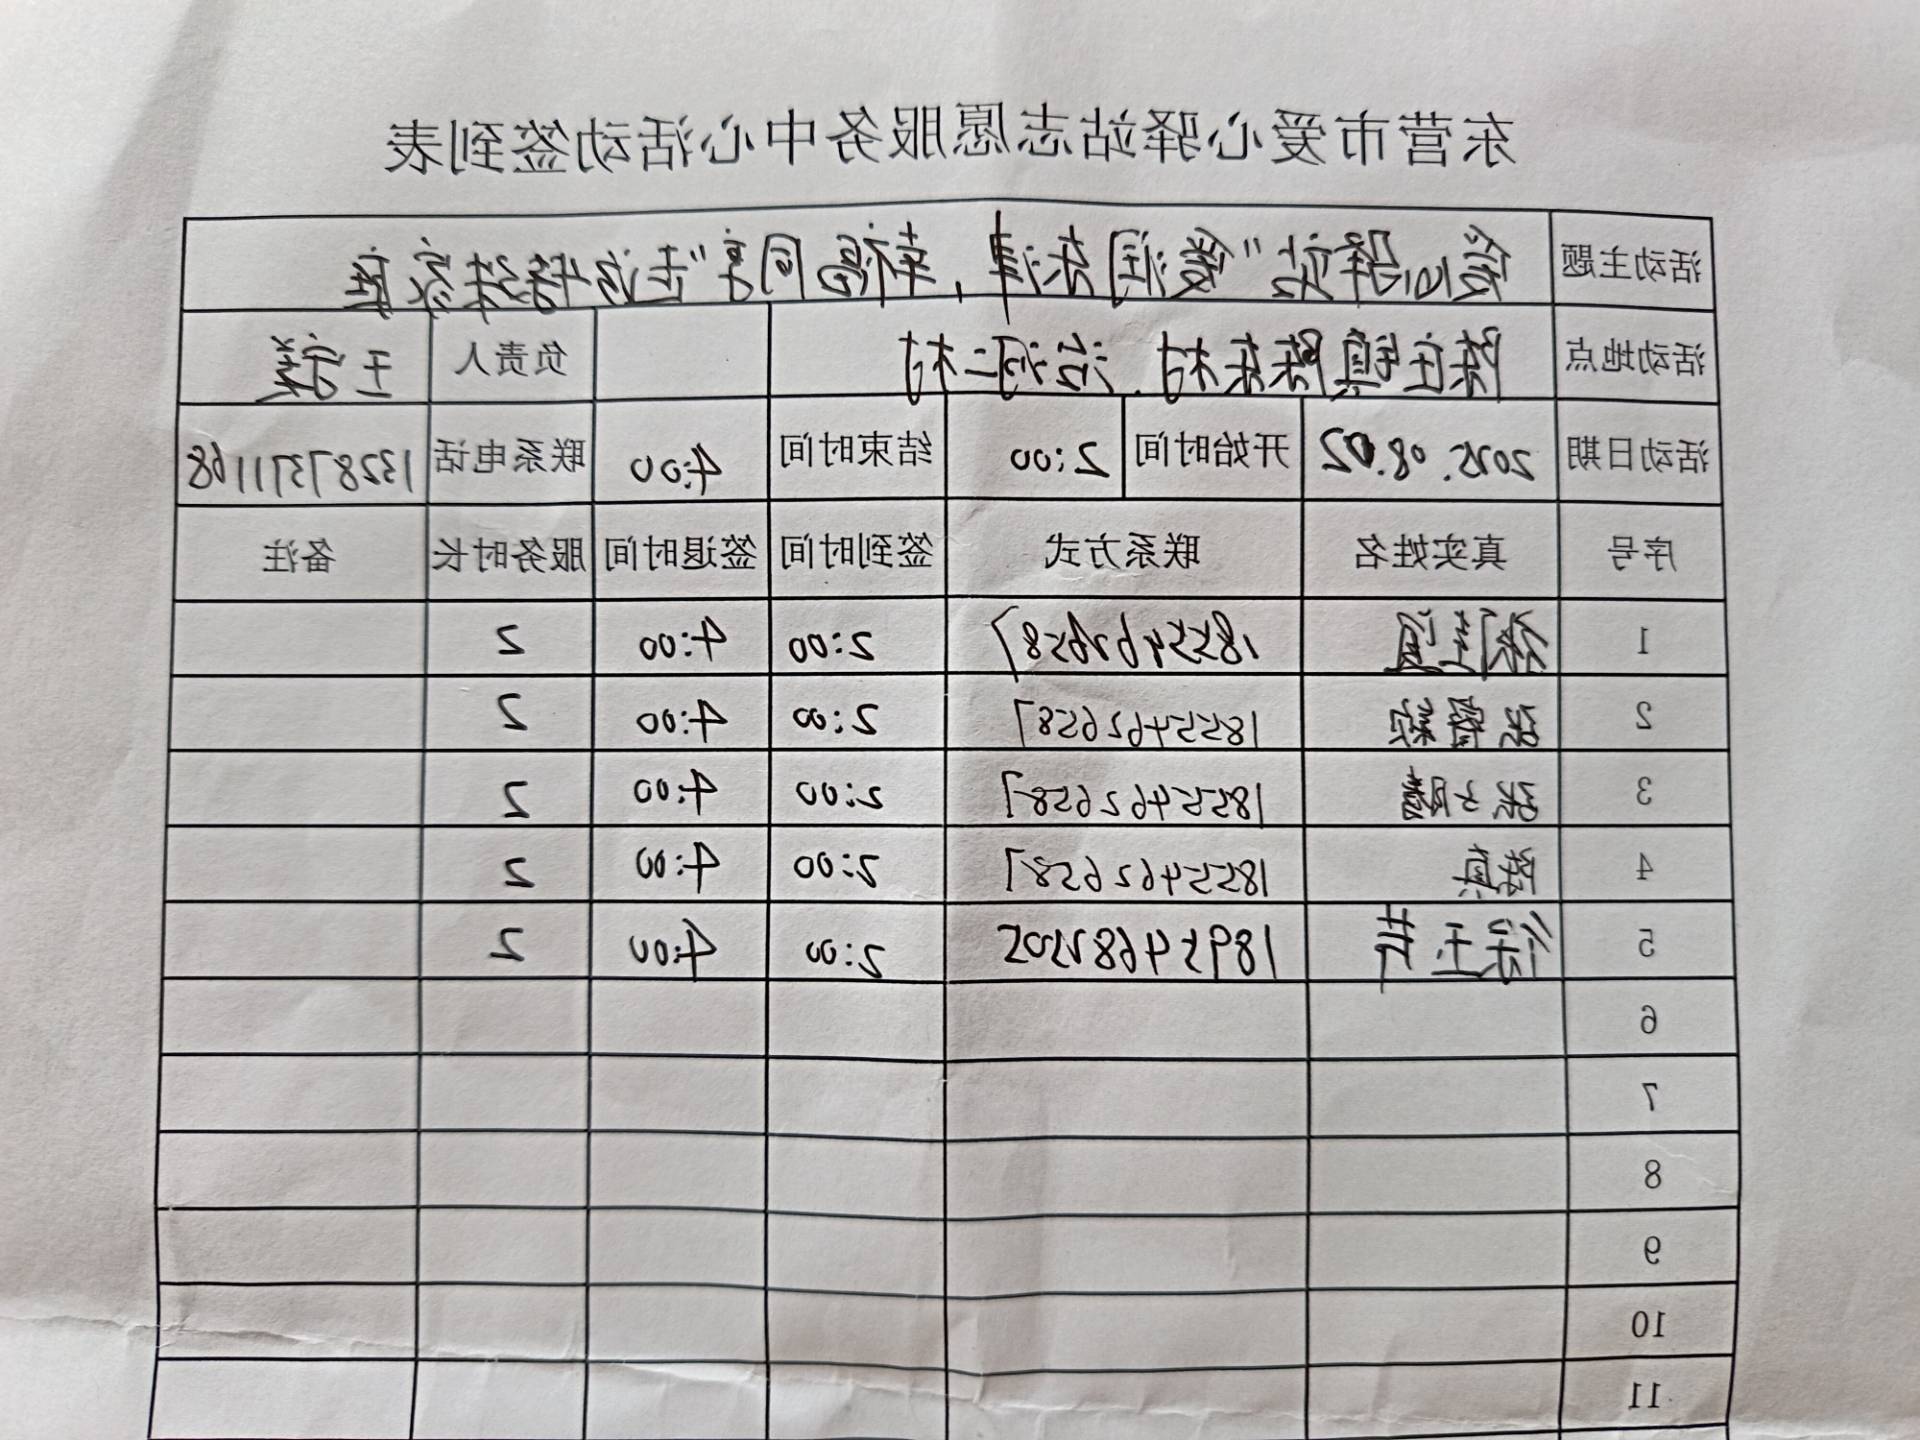 东营市爱心驿站志愿服务中心活动签到表
活动主题 爱心驿站“爱润东津，幸福同享”走访特殊家庭
活动地点 陈庄镇陈东村、沿河二村 负责人 王
活动日期 2025.08.02 开始时间 2:00 结束时间 4:00 联系电话 13287371168
序号 真实姓名 联系方式 签到时间 签退时间 服务时长 备注
1 18554626587 2:00 4:00 2
2 张 18554626587 2:00 4:00 2
3 张 18554626587 2:00 4:00 2
4 18554626587 2:00 4:00 2
5 徐玉 2:00 4:00 2
6
7
8
9
10
11